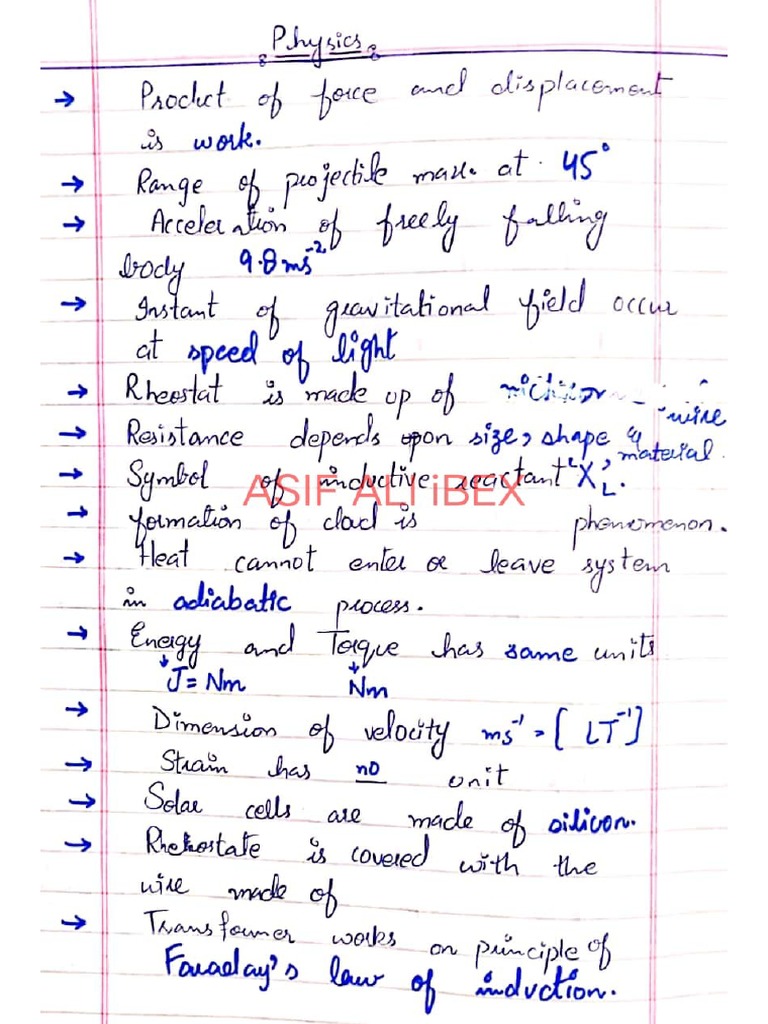 Physics
→ Product of force and displacement
is work.
→ Range of projectile max. at 45°
→ Acceleration of freely falling
body 9.8 ms⁻²
→ Instant of gravitational field occur
at speed of light
→ Rheostat is made up of
wire
→ Resistance depends upon size, shape & material.
→ Symbol of inductive reactant 'X_L'.
ASIF ALI iBEX
→ formation of cloud is phenomenon.
→ Heat cannot enter or leave system
in adiabatic process.
→ Energy and Torque has same units
J = Nm Nm
→ Dimension of velocity ms⁻¹ = [LT⁻¹]
→ Strain has no unit
→ Solar cells are made of silicon.
→ Rhehostate is covered with the
wire made of
→ Transformer works on principle of
Faraday's law of induction.